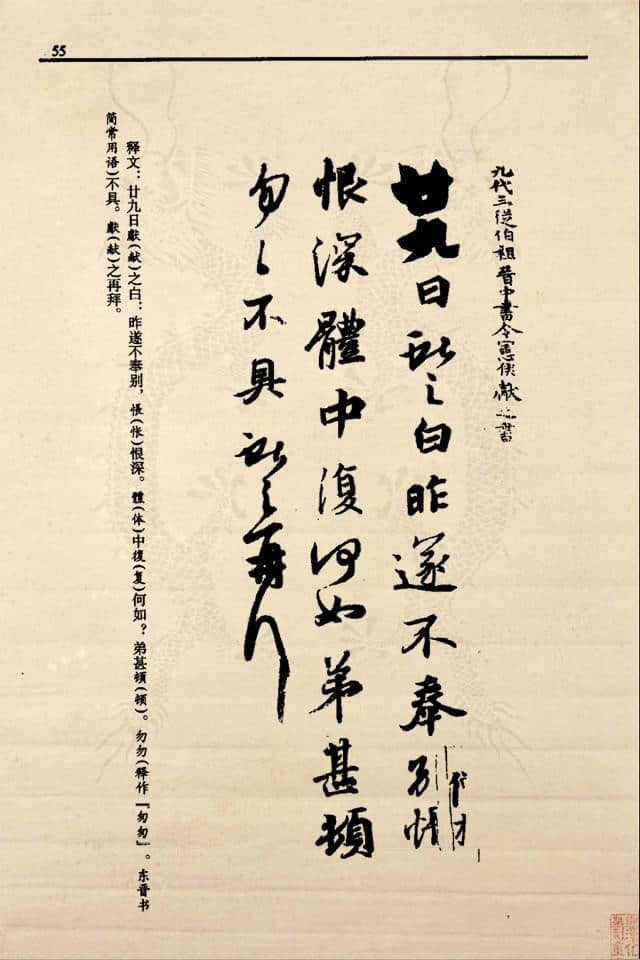 55
九代三從伯祖晉中書令憲侯獻之書
廿九日獻之白昨遂不奉別悵
恨深體中復何如弟甚頓
勿々不具獻之再拜
释文：廿九日獻(献)之白：昨遂不奉别，悵(怅)恨深。體(体)中復(复)何如？弟甚頓(顿)。勿勿(释作『匆匆』。东晋书
简常用语)不具。獻(献)之再拜。